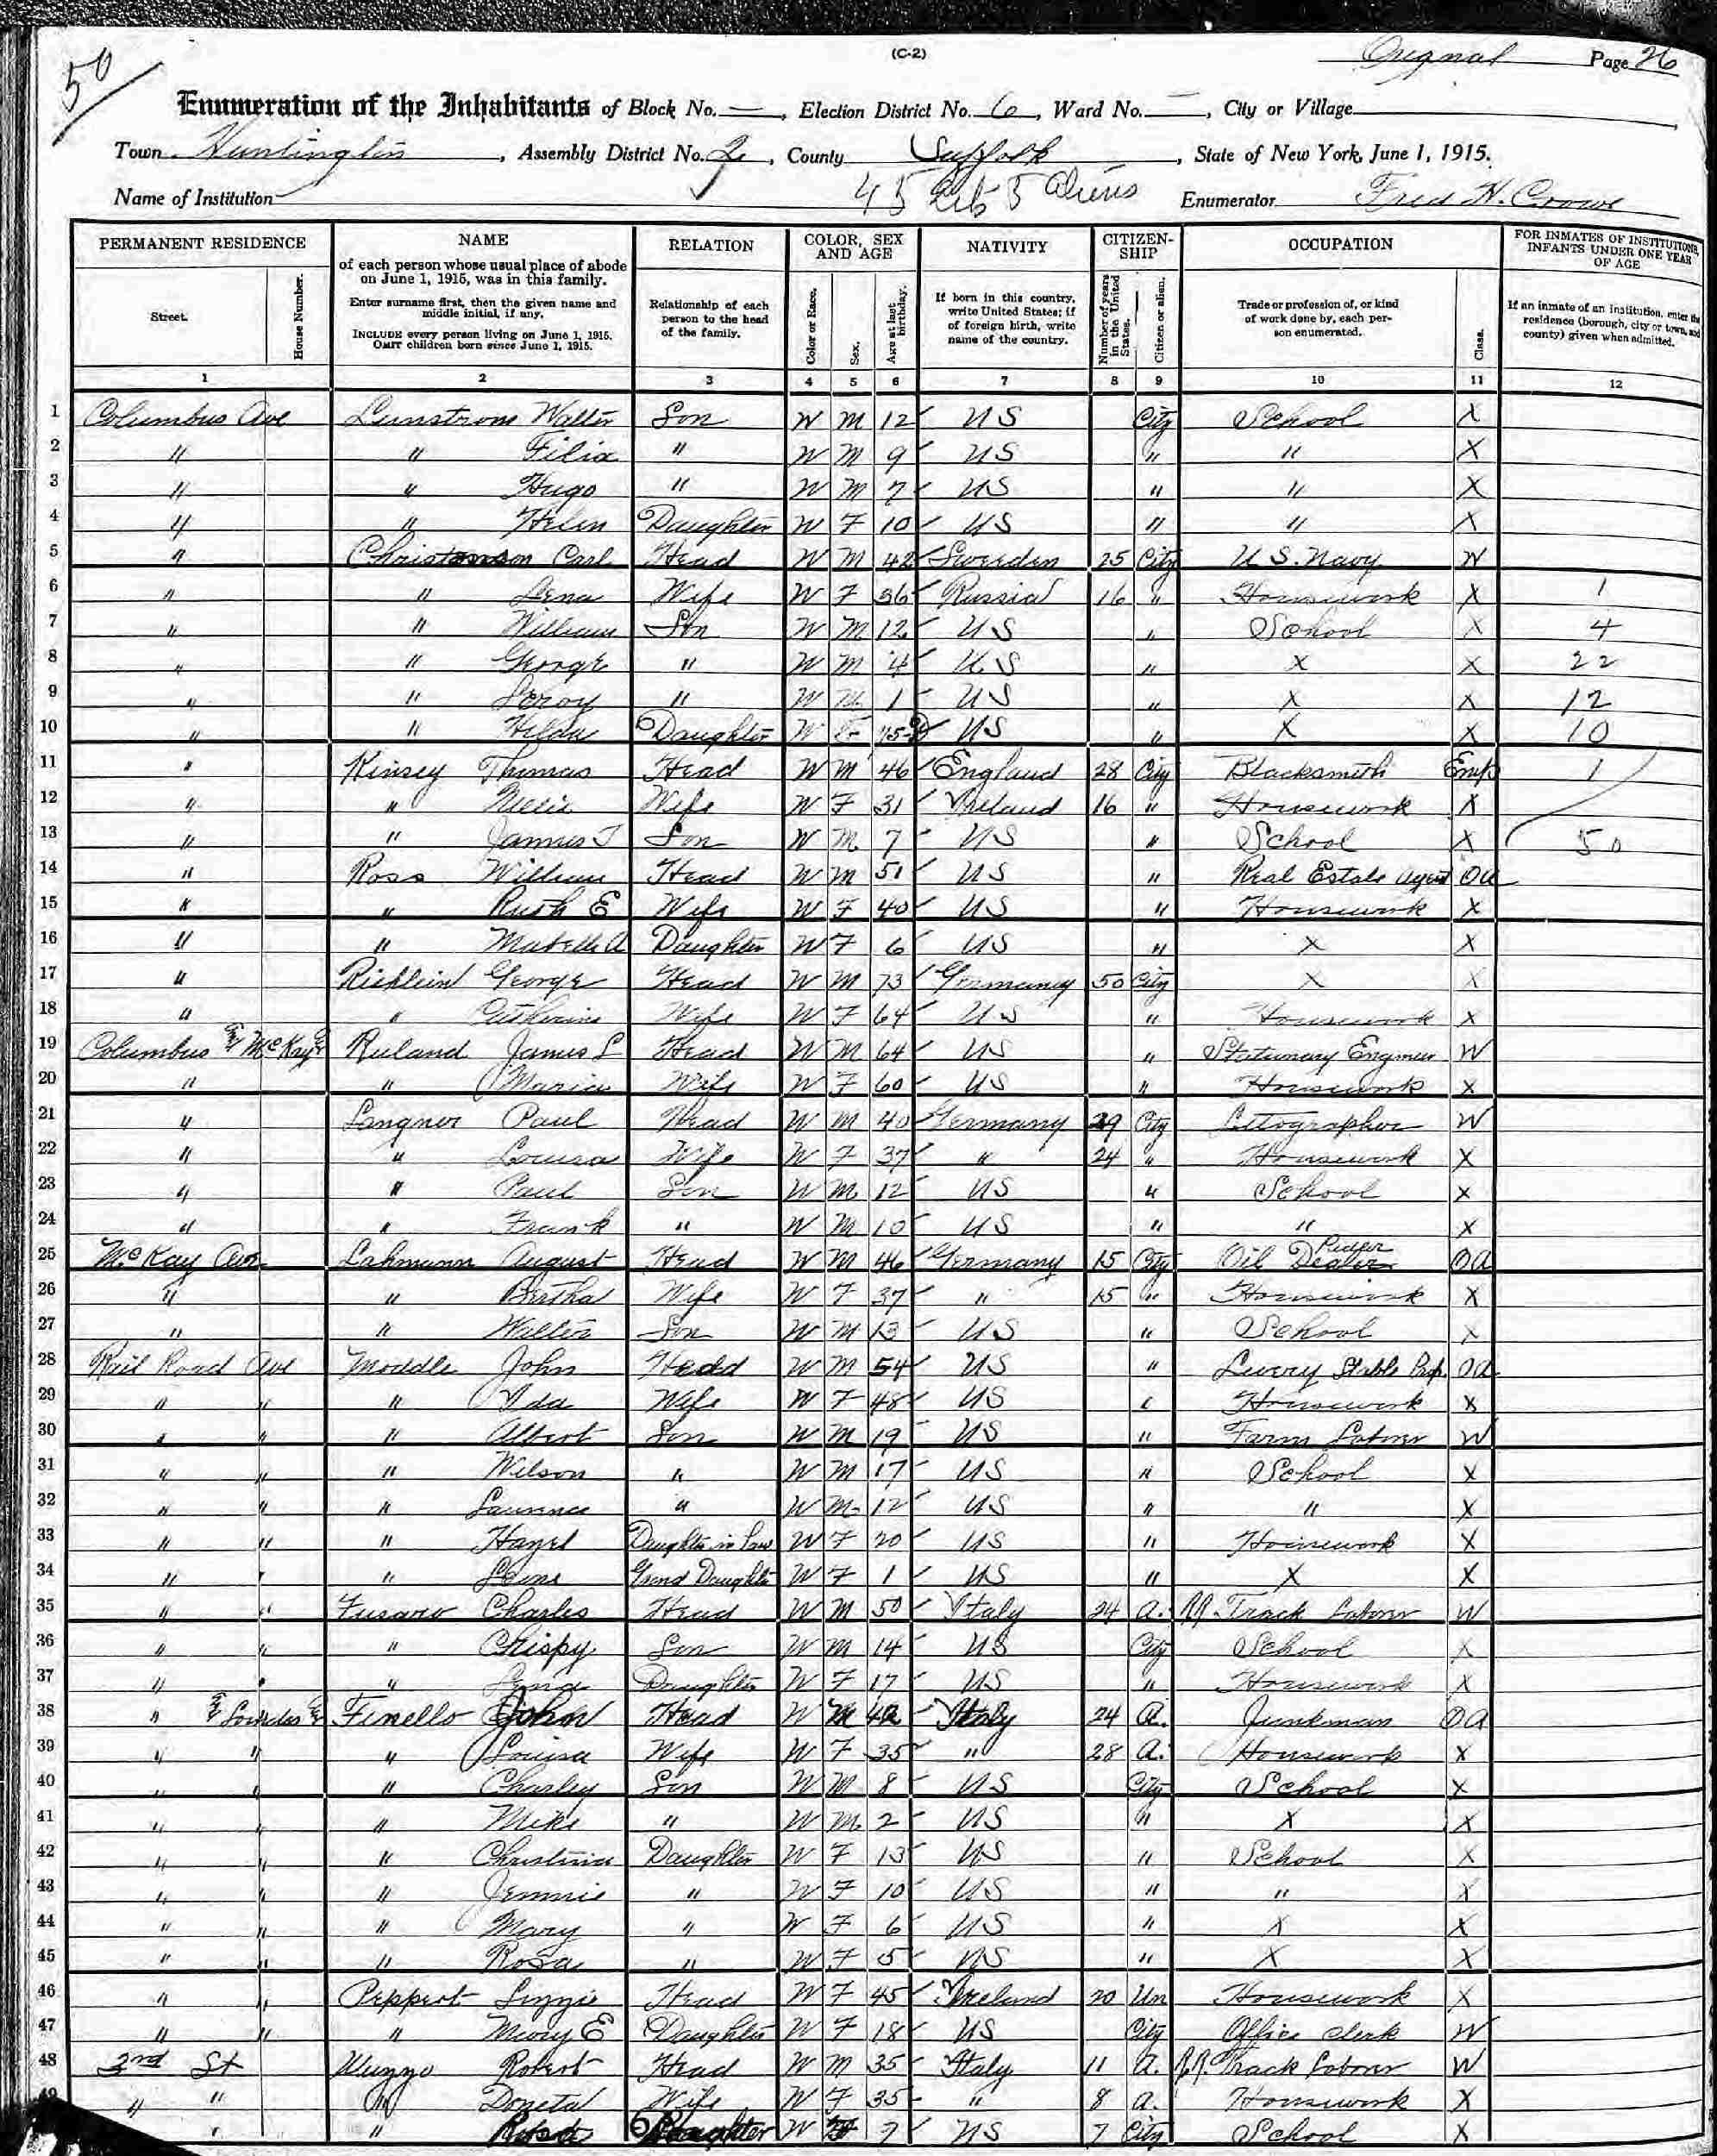 (C-2)
Orignal Page 26
50
Enumeration of the Inhabitants of Block No. —, Election District No. 6, Ward No. —, City or Village
Town Huntington, Assembly District No. 2, County Suffolk, State of New York, June 1, 1915.
Name of Institution 45 Cit 5 Aliens Enumerator Fred H. Crowe
PERMANENT RESIDENCE NAME RELATION COLOR, SEX AND AGE NATIVITY CITIZEN-SHIP OCCUPATION FOR INMATES OF INSTITUTIONS, INFANTS UNDER ONE YEAR OF AGE
Street. House Number. of each person whose usual place of abode on June 1, 1915, was in this family. Enter surname first, then the given name and middle initial, if any. INCLUDE every person living on June 1, 1915. OMIT children born since June 1, 1915. Relationship of each person to the head of the family. Color or Race. Sex. Age at last birthday. If born in this country, write United States; if of foreign birth, write name of the country. Number of years in the United States. Citizen or alien. Trade or profession of, or kind of work done by, each person enumerated. Class. If an inmate of an institution, enter the residence (borough, city or town, and county) given when admitted.
1 2 3 4 5 6 7 8 9 10 11 12
1 Columbus Ave Lunstrom Walter Son W M 12 US City School X
2 " " Filix " W M 9 US " " X
3 " " Hugo " W M 7 US " " X
4 " " Helen Daughter W F 10 US " " X
5 " Christenson Carl Head W M 42 Sweeden 25 City U S. Navy W
6 " " Lena Wife W F 36 Russia 16 " Housework X 1
7 " " William Son W M 12 US " School X 4
8 " " George " W M 4 U.S " X X 22
9 " " Leroy " W M 1 US " X X 12
10 " " Hilda Daughter W F US " X X 10
11 " Kinsey Thomas Head W M 46 England 28 City Blacksmith Emp 1
12 " " Nellie Wife W F 31 Ireland 16 " Housework X
13 " " James T Son W M 7 US " School X 50
14 " Ross William Head W M 51 US " Real Estate Agent OA
15 " " Ruth E Wife W F 40 US " Housework X
16 " " A Daughter W F 6 US " X X
17 " Richlein George Head W M 73 Germany 50 City X X
18 " " Catherine Wife W F 64 US " Housework X
19 Columbus & McKay Ruland James L Head W M 64 US " Stationary Engineer W
20 " " Maria Wife W F 60 US " Housework X
21 " Langner Paul Head W M 40 Germany 29 City Litographer W
22 " " Louisa Wife W F 37 " 24 " Housework X
23 " " Paul Son W M 12 US " School X
24 " " Frank " W M 10 US " " X
25 McKay Ave Lahmann August Head W M 46 Germany 15 City Oil Dealer Pedler OA
26 " " Bertha Wife W F 37 " 15 " Housework X
27 " " Walter Son W M 13 US " School X
28 Rail Road Ave Moddle John Head W M 54 US " Livery Stable Prop. OA
29 " " " Ida Wife W F 48 US " Housework X
30 " " " Albert Son W M 19 US " Farm Laborer W
31 " " " Wilson " W M 17 US " School X
32 " " " Laurence " W M 12 US " " X
33 " " " Hazel Daughter in Law W F 20 US " Housework X
34 " " " Grand Daughter W F 1 US " X X
35 " " Fusaro Charles Head W M 50 Italy 24 A. RR. Track Laborer W
36 " " " Chispy Son W M 14 US City School X
37 " " " Lena Daughter W F 17 US " Housework X
38 " & Finello John Head W M 42 Italy 24 A. Junkman OA
39 " " " Louisa Wife W F 35 " 28 A. Housework X
40 " " " Charley Son W M 8 US City School X
41 " " " Mike " W M 2 US " X X
42 " " " Christina Daughter W F 13 US " School X
43 " " " Jennie " W F 10 US " " X
44 " " " Mary " W F 6 US " X X
45 " " " Rosa " W F 5 US " X X
46 " " Peppert Lizzie Head W F 45 Ireland 20 Un Housework X
47 " " " Mary E Daughter W F 18 US City Office Clerk W
48 3rd St Muzzo Robert Head W M 35 Italy 11 A. RR. Track Laborer W
49 " " " Doneta Wife W F 35 " 8 A. Housework X
" " Rosa Daughter W F 7 US 7 City School X